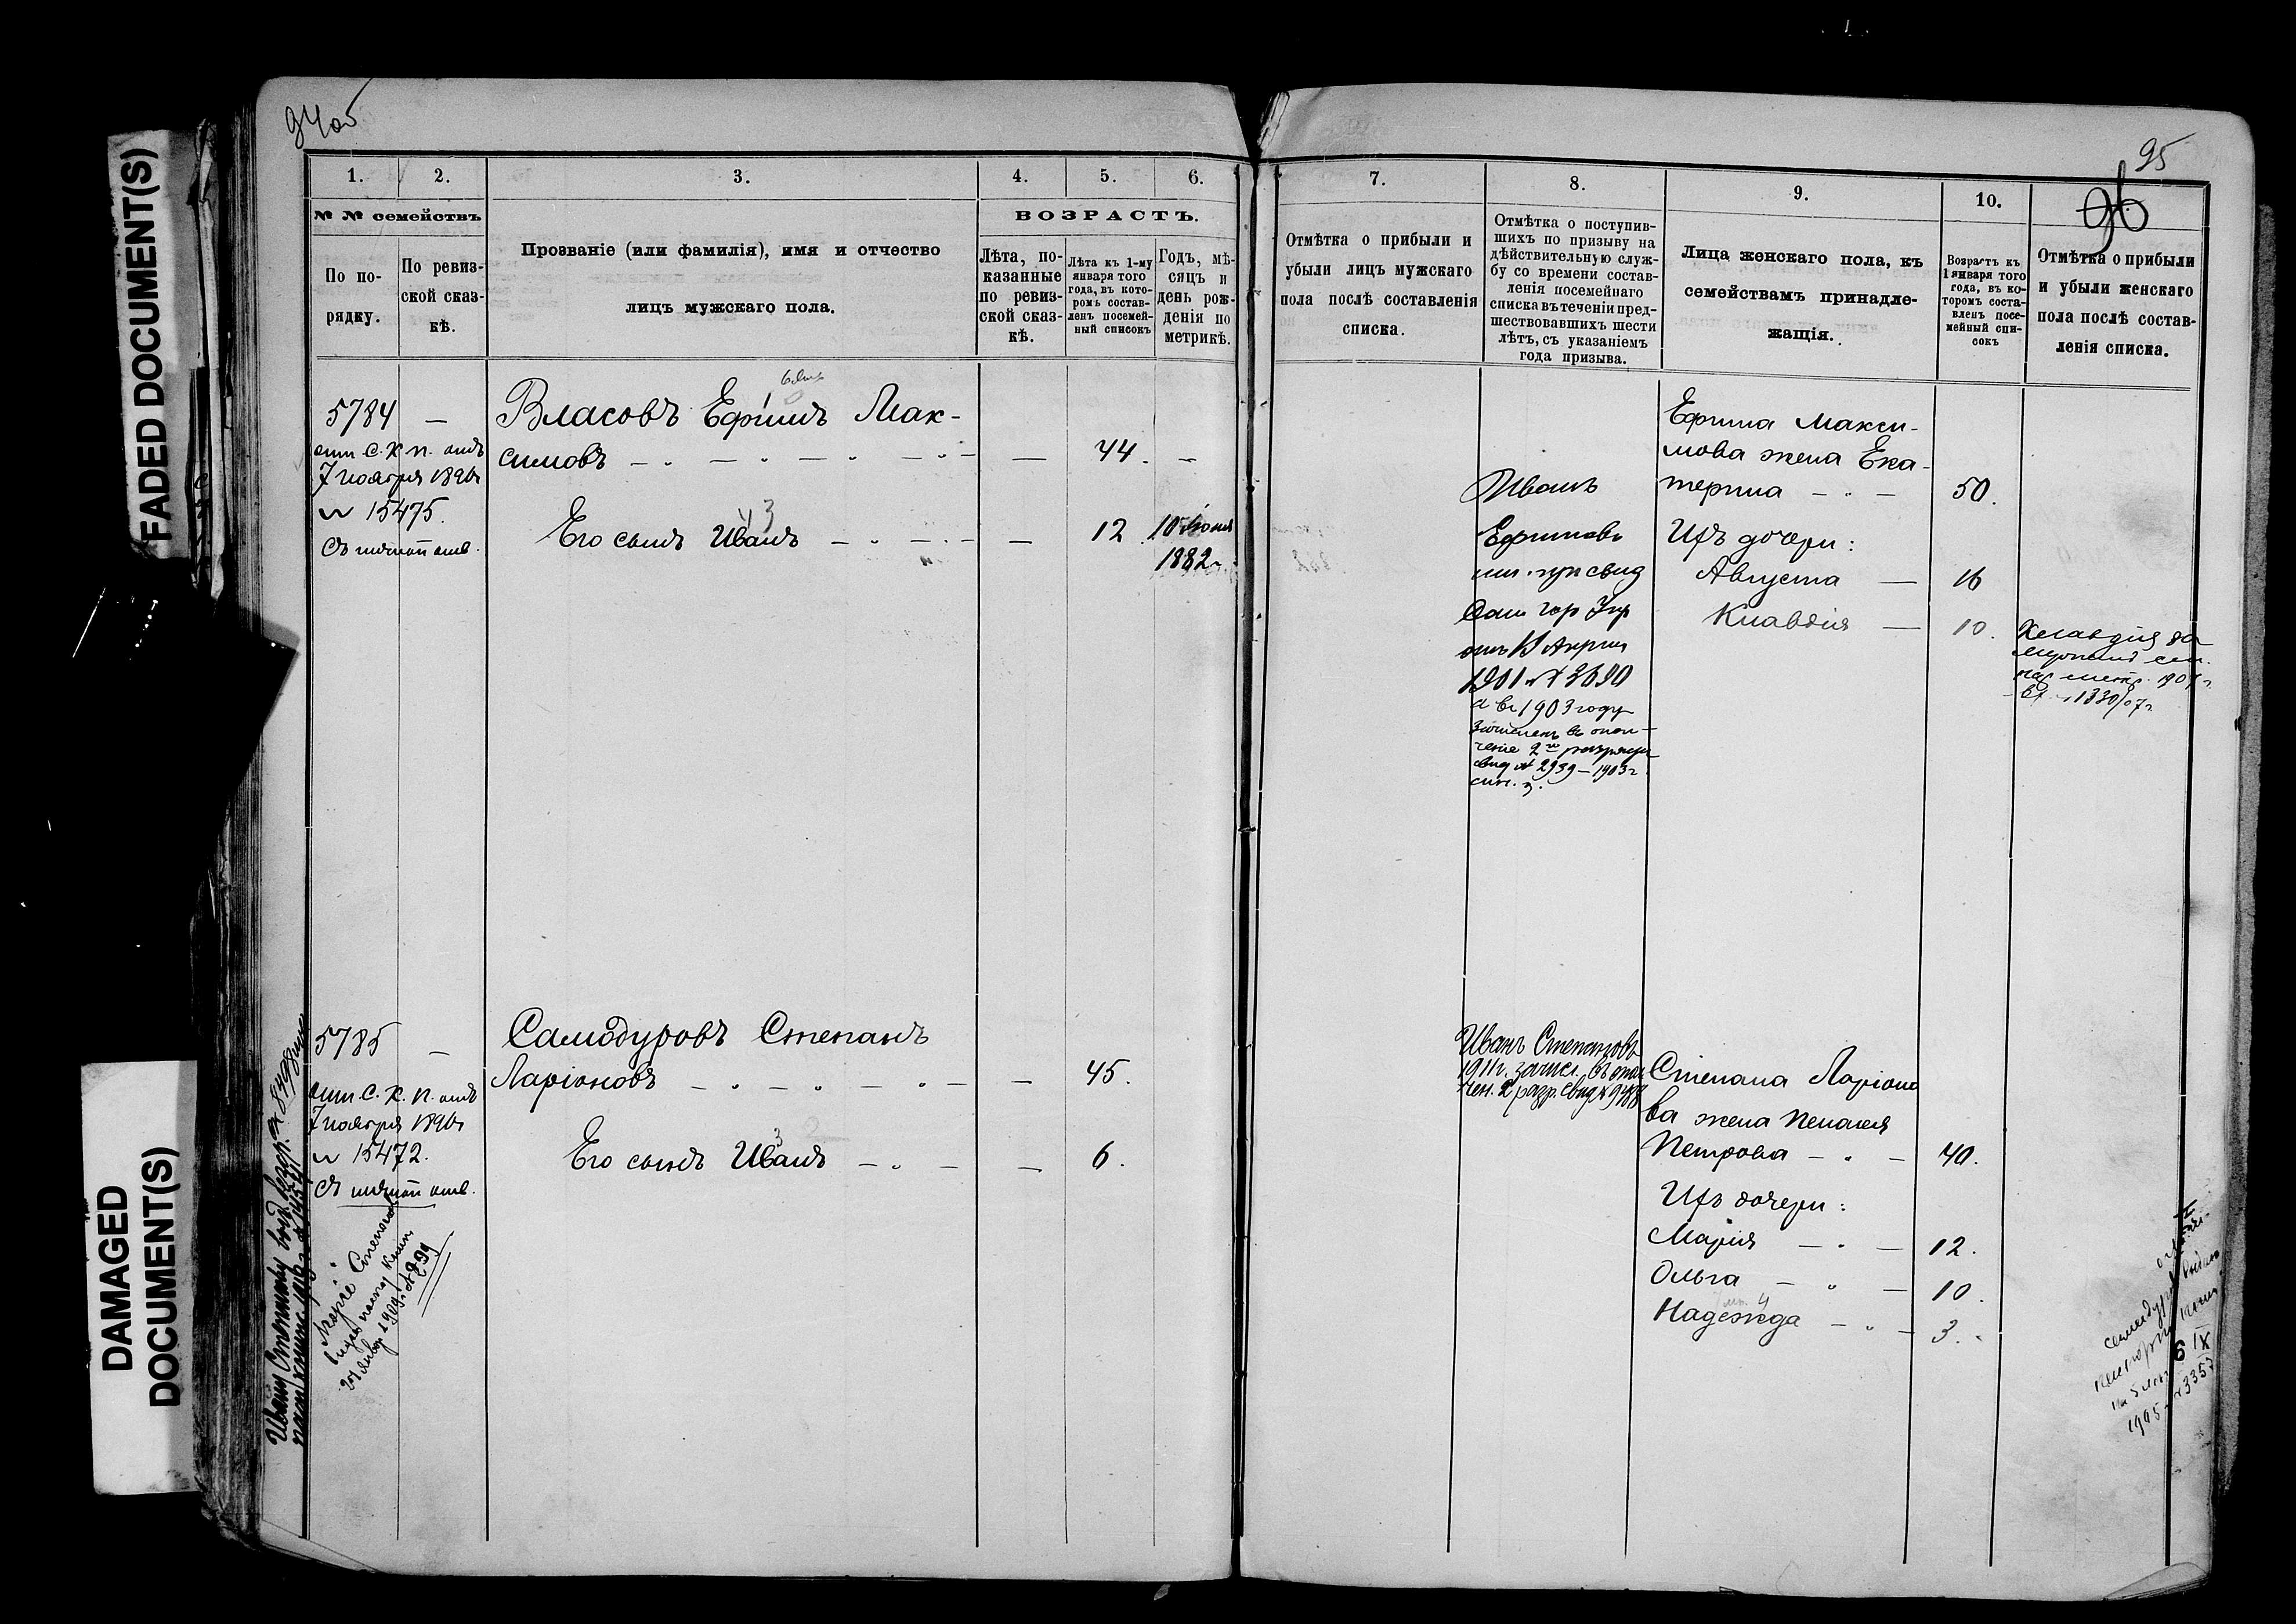 94об
1.
2.
3.
4.
5.
6.
№ № семействъ
По по-
рядку.
По ревиз-
ской сказ-
кѣ.
Прозваніе (или фамилія), имя и отчество
лицъ мужскаго пола.
ВОЗРАСТЪ.
Лѣта, по-
казанные
по ревиз-
ской сказ-
кѣ.
Лѣта къ 1-му
января того
года, въ кото-
ромъ состав-
ленъ посемей-
ный списокъ
Годъ, мѣ-
сяцъ и
день рож-
денія по
метрикѣ.
5784 —
С. К. П. отъ
7 ноября
№ 15475.
Власовъ Ефимъ Мак-
симовъ — 44. —
Его сынъ Иванъ — 12. 10 Іюня
1882 г.
5785 —
С. К. П. отъ
7 ноября
№ 15472.
Самодуровъ Степанъ
Ларіоновъ — 45.
Его сынъ Иванъ — 6.
Ивану Степанову
Маріи
95
96
7.
8.
9.
10.
Отмѣтка о прибыли и
убыли лицъ мужскаго
пола послѣ составленія
списка.
Отмѣтка о поступив-
шихъ по призыву на
дѣйствительную служ-
бу со времени состав-
ленія посемейнаго
списка въ теченіи пред-
шествовавшихъ шести
лѣтъ, съ указаніемъ
года призыва.
Лица женскаго пола, къ
семействамъ принадле-
жащія.
Возрастъ къ
1 января того
года, въ ко-
торомъ соста-
вленъ посе-
мейный спи-
сокъ
Отмѣтка о прибыли
и убыли женскаго
пола послѣ состав-
ленія списка.
Иванъ
Ефимовъ
1901 № 3690
а въ 1903 году
зачисленъ въ опол-
ченіе 2го разряда
свид № 2939 — 1903 г.
Ефима Макси-
мова жена Ека-
терина — 50.
Ихъ дочери:
Августа — 16
Клавдія — 10.
Клавдія за
1330/07 г.
Иванъ Степановъ
1911 г. зачисл. въ опол
чен. 2 разр. свид №
Степана Ларіоно
ва жена Пелагея
Петрова — 40.
Ихъ дочери:
Марія — 12.
Ольга — 10.
Надежда — 3.